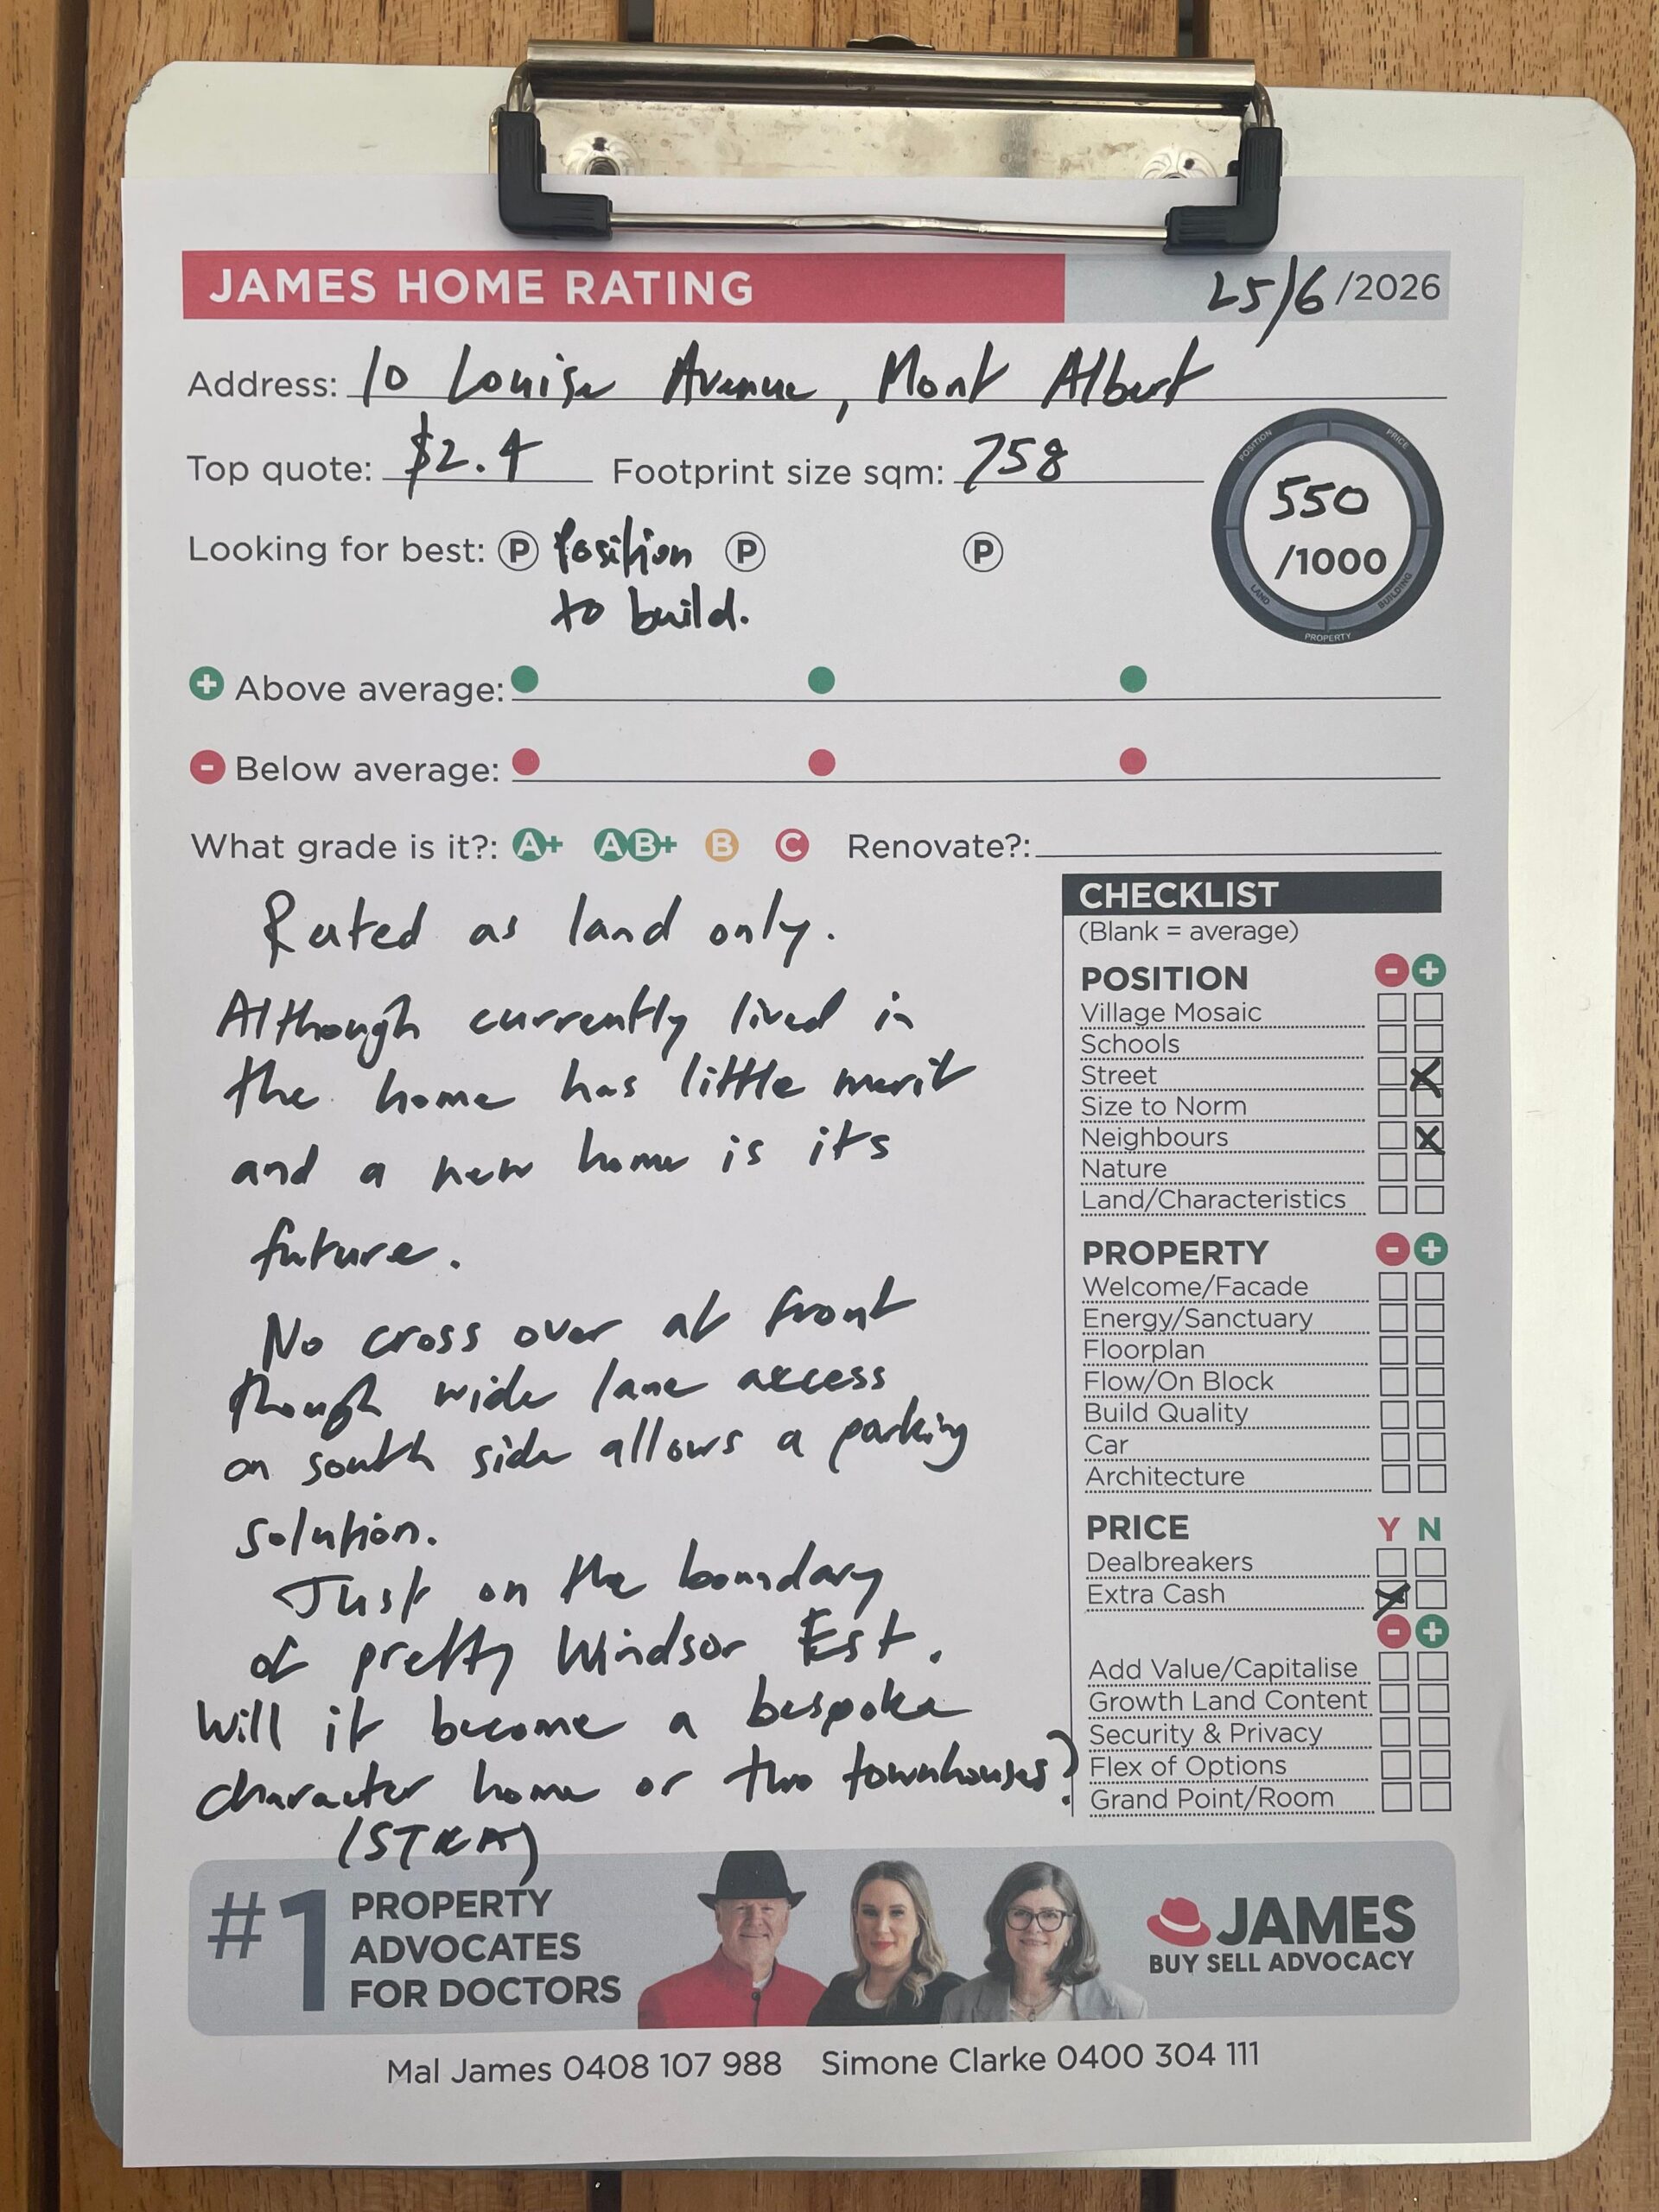 JAMES HOME RATING 25/6/2026
Address: 10 Louise Avenue, Mont Albert
Top quote: $2.4 Footprint size sqm: 758
POSITION PRICE
550
/1000
LAND BUILDING
PROPERTY
Looking for best: P Position P P
to build.
+ Above average:
- Below average:
What grade is it?: A+ AB+ B C Renovate?:
Rated as land only.
Although currently lived in
the home has little merit
and a new home is its
future.
No cross over at front
though wide lane access
on south side allows a parking
solution.
Just on the boundary
of pretty Windsor Est.
Will it become a bespoke
character home or two townhouses?
(STCA)
CHECKLIST
(Blank = average)
POSITION - +
Village Mosaic
Schools
Street X
Size to Norm
Neighbours X
Nature
Land/Characteristics
PROPERTY - +
Welcome/Facade
Energy/Sanctuary
Floorplan
Flow/On Block
Build Quality
Car
Architecture
PRICE Y N
Dealbreakers
Extra Cash X
- +
Add Value/Capitalise
Growth Land Content
Security & Privacy
Flex of Options
Grand Point/Room
#1 PROPERTY
ADVOCATES
FOR DOCTORS
JAMES
BUY SELL ADVOCACY
Mal James 0408 107 988 Simone Clarke 0400 304 111